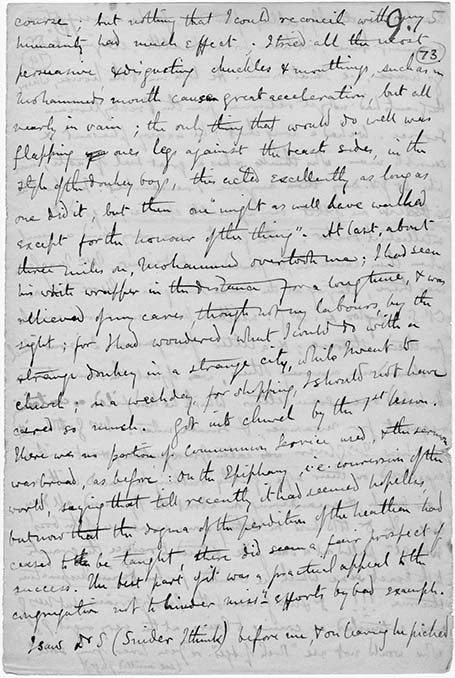 9.
73
course : but nothing that I could reconcile with my
humanity had much effect. I tried all the most
persuasive, & disgusting chuckles & mouthings, such as in
Mohammed's mouth cause great acceleration, but all
nearly in vain ; the only thing that would do well was
flapping one's legs against the beast sides, in the
style of the donkey boys, this acted excellently as long as
one did it, but then one "might as well have walked
except for the honour of the thing". At last, about
three miles on, Mohammed overtook me; I had seen
his white wrapper in the distance for a long time, & was
relieved of my cares, though not my labours, by the
sight ; for I had wondered what I could do with a
strange donkey in a strange city, while I went to
church ; on a weekday, for shopping, I should not have
cared so much. Got into church by the 1st lesson.
There was no portion of Communion Service used, & the sermon
was broad, as before : On the Epiphany i.e. conversion of the
world, saying that till recently it had seemed hopeless,
but now that the dogma of the perdition of the heathen had
ceased to be taught, there did seem a fair prospect of
success. The best part of it was a practical appeal to the
congregation not to hinder miss.y efforts by bad example.
I saw Dr S (Snider I think) before me, & on leaving he picked